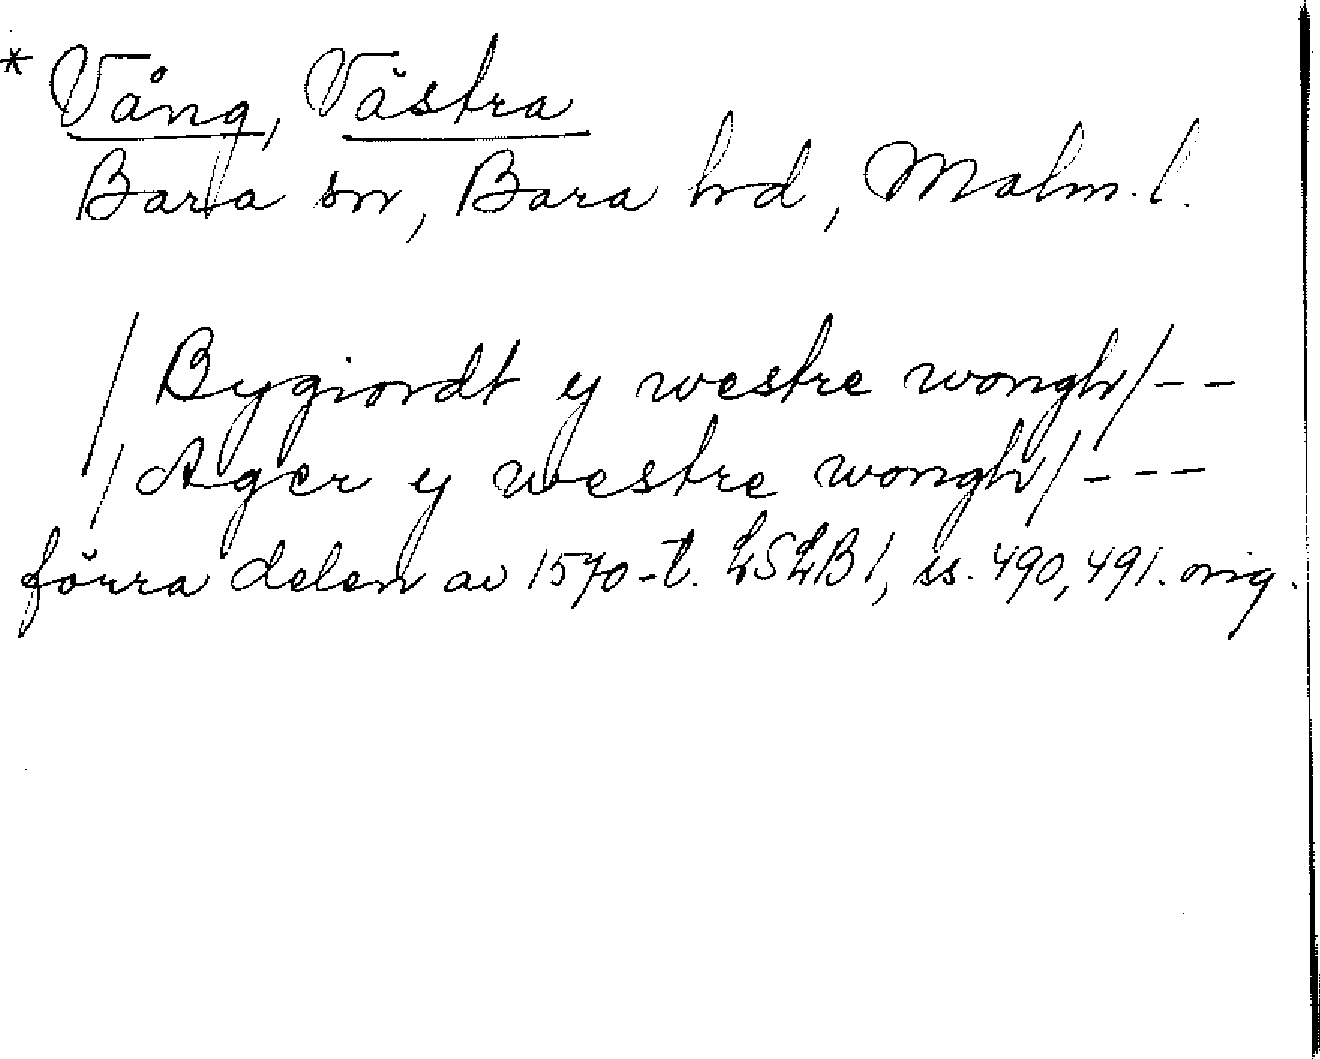 * Vång, Västra
Bara sn, Bara hd, Malm. l.
/ Bygiordt y westre wongh/ - -
/ Ager y westre wongh/ - - -
förra delen av 1570-t. LSLB 1, ss. 490, 491. orig.